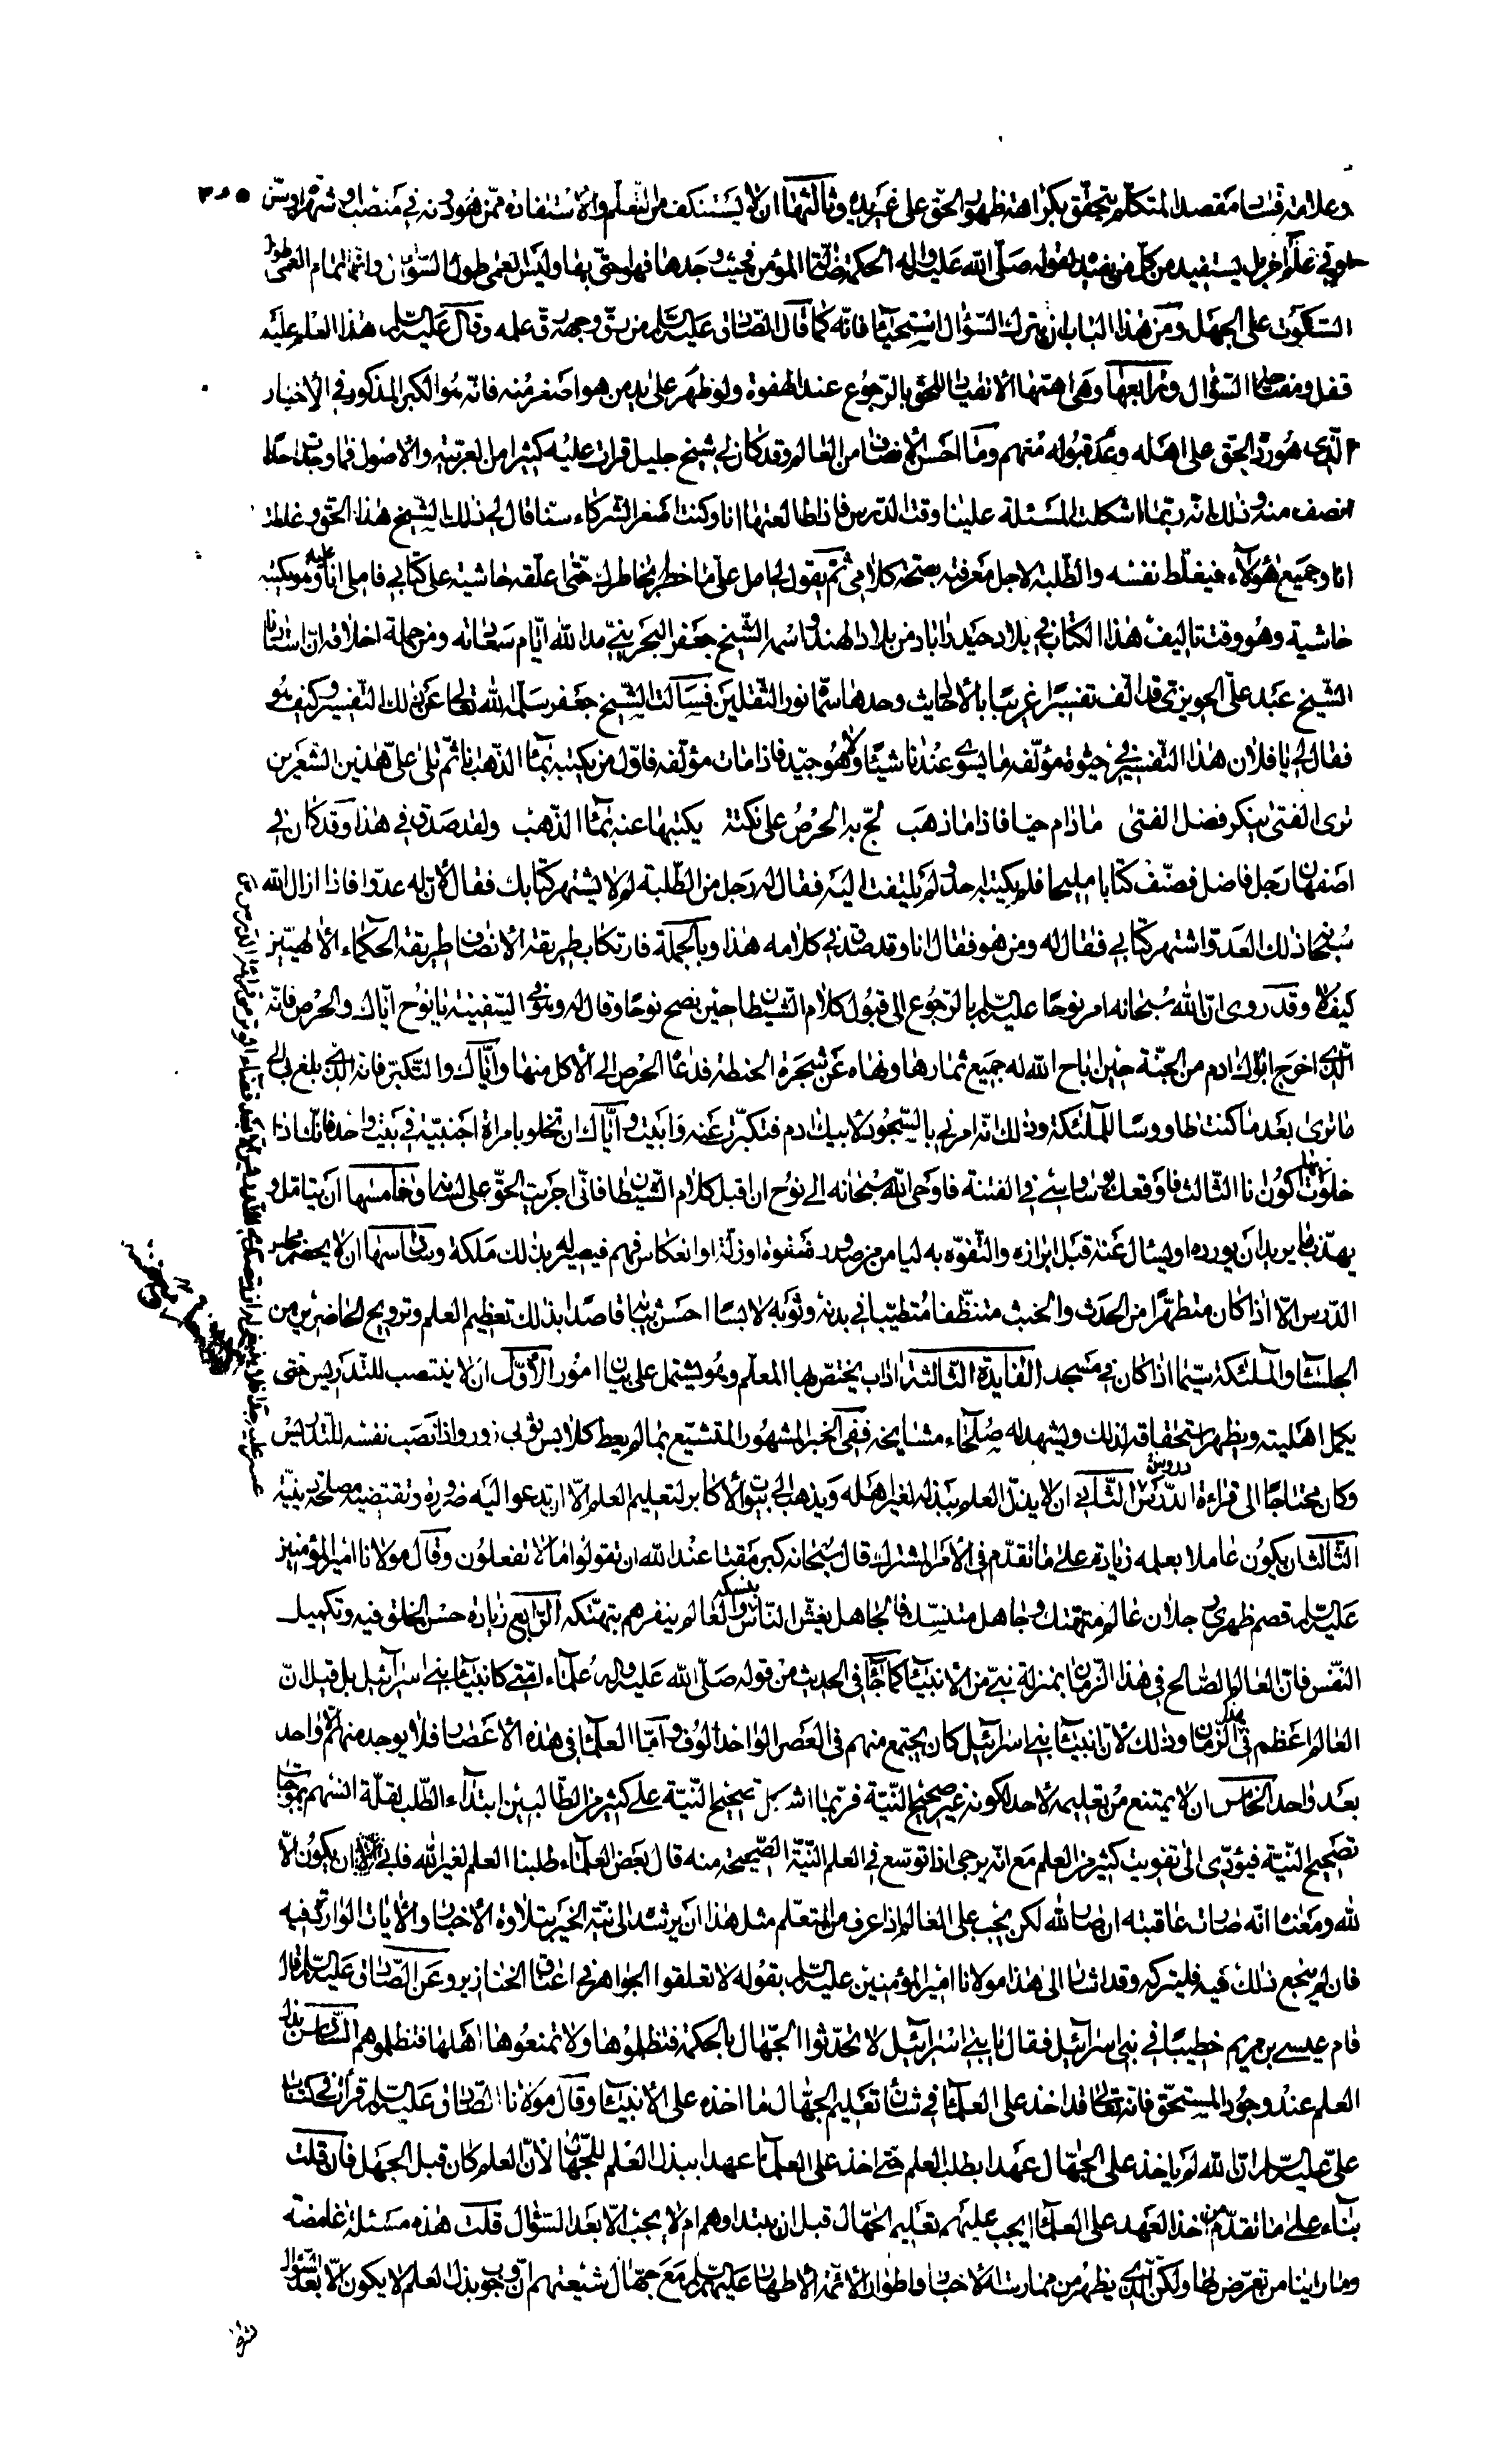 وعلامة فساد مقصد المتكلم يتحقق بكراهته ظهور الحق على غير يده وثالثها ان لا يستنكف من التعلم والاستفادة ممن هو دونه في منصب او شهرة او سن
او في علم اخر بل يستفيد من كل من يفيد لقوله صلّى الله عليه واله الحكمة ضالة المؤمن فحيث وجدها فهو احق بها وليس العمى طول السؤال وانما تمام العمى طول
السكوت على الجهل ومن هذا الباب ان يترك السؤال استحياء فانه كما قال الصادق عليه السلم من رق وجهه رق علمه وقال عليه السلم هذا العلم عليه
قفل ومفتاحه السؤال ورابعها وهي اهمها الانقياد للحق بالرجوع عند الهفوة ولو ظهر على يد من هو اصغر منه فانه هو الكبر المذكور في الاخبار
الذي هو رد الحق على اهله وعدم قبوله منهم وما احسن الانصاف من العالم وقد كان لي شيخ جليل قرات عليه كثيرا من العربية والاصول فما وجدت احدا
انصف منه وذلك انه ربما اشكلت المسئلة علينا وقت الدرس فاذا طالعتها انا وكنت اصغر الشركاء سنا قال لي ذلك الشيخ هذا الحق وغلطت
انا وجميع هؤلاء فيغلط نفسه والطلبة لاجل معرفته بصحة كلامي ثم يقول لي امل علي ما خطر بخاطرك حتى اعلقه حاشية على كتابي فاملي انا عليه وهو يكتبه
حاشية وهو وقت تاليف هذا الكتاب في بلاد حيدراباد من بلاد الهند واسمه الشيخ جعفر البحريني مد الله ايام سعاداته ومن جملة اخلاقه ان استادنا
الشيخ عبد علي الحويزي قد الف تفسيرا غريبا بالاحاديث وحدها سماه نور الثقلين فسالت الشيخ جعفر سلمه الله تعالى عن ذلك التفسير وكيف هو
فقال لي يا فلان هذا التفسير في حيوة مؤلفه ما يسوى عندنا شيئا ولا هو جيد فاذا مات مؤلفه فاول من يكتبه بماء الذهب انا ثم تلى علي هذين الشعرين
ترى الفتى ينكر فضل الفتى ما دام حيا فاذا ما ذهب لج به الحرص على نكتة يكتبها عنه بماء الذهب ولقد صدق في هذا وقد كان في
اصفهان رجل فاضل فصنف كتابا مليحا فلم يكتبه احد ولم يلتفت اليه فقال له رجل من الطلبة لم لا يشتهر كتابك فقال لان له عدوا فاذا ازال الله
سبحانه ذلك العدو اشتهر كتابي فقال له ومن هو فقال انا وقد صدق في كلامه هذا وبالجملة فارتكاب طريقة الانصاف طريقة الحكماء الالهيين
كيف لا وقد روى ان الله سبحانه امر نوحا عليه السلم بالرجوع الى قبول كلام الشيطان حين نصح نوحا وقال له وهو في السفينة يا نوح اياك والحرص فانه
الذي اخرج اباك ادم من الجنة حين اباح الله له جميع ثمارها ونهاه عن شجرة الحنطة فدعاه الحرص الى الاكل منها واياك والتكبر فانه الذي بلغ بي الى
ما ترى بعد ما كنت طاووسا للملئكة وذلك انه امرني بالسجود لابيك ادم فتكبرت عنه وابيت واياك ان تخلو بامراة اجنبية في بيت واحد فانك اذا
خلوت بها اكون انا الثالث فاوقعك بوساوسي في الفتنة فاوحى الله سبحانه الى نوح ان اقبل كلام الشيطان فاني اجريت الحق على لسانه وخامسها ان يتامل و
يهذب ما يريد ان يورده او يسال عنه قبل ابرازه والتفوه به ليامن من صدور هفوة او زلة او انعكاس فهم فيصير له بذلك ملكة وسادسها ان لا يحضر مجلس
الدرس الا اذا كان متطهرا من الحدث والخبث متنظفا متطيبا في بدنه وثوبه لابسا احسن ثيابه قاصدا بذلك تعظيم العلم وترويح الحاضرين من
الجلساء والملئكة سيما اذا كان في مسجد الفايدة الثالثة اداب يختص بها المعلم وهو يشتمل على بيان امور الاول ان لا ينتصب للتدريس حتى
يكمل اهليته ويظهر استحقاقه لذلك ويشهد له صلحاء مشايخه ففي الخبر المشهور المتشبع بما لم يعط كلابس ثوبي زور واذا نصب نفسه للتدريس
وكان محتاجا الى قراءة الدرس دروس الثاني ان لا يذل العلم ببذله لغير اهله ويذهب الى بيوت الاكابر لتعليم العلم الا ان يدعوا اليه ضرورة وتقتضيه مصلحة دينية
الثالث ان يكون عاملا بعلمه زيادة على ما تقدم في الامر المشترك قال سبحانه كبر مقتا عند الله ان تقولوا ما لا تفعلون وقال مولانا امير المؤمنين
عليه السلم قصم ظهري رجلان عالم متهتك وجاهل متنسك فالجاهل يغش الناس بنسكه والعالم ينفرهم بتهتكه الرابع زيادة حسن الخلق فيه وتكميل
النفس فان العالم الصالح في هذا الزمان بمنزلة نبي من الانبياء كما جاء في الحديث من قوله صلّى الله عليه واله علماء امتي كانبياء بني اسرائيل بل قيل ان
العالم اعظم في هذا الزمان وذلك لان انبياء بني اسرائيل كان يجتمع منهم في العصر الواحد الوف واما العلماء في هذه الاعصار فلا يوجد منهم الا واحد
بعد واحد الخامس ان لا يمتنع من تعليمه لاحد لكونه غير صحيح النية فربما اشكل تصحيح النية على كثير من الطالبين ابتداء الطلب لقلة انسهم بموجبات
تصحيح النية فيؤدي الى تفويت كثير من العلم مع انه يرجى اذا توسع في العلم النية الصحيحة منه قال بعض العلماء طلبنا العلم لغير الله فابى ان يكون الا
لله ومعناه انه صارت عاقبته ان صار لله لكن يجب على العالم اذا عرف من المتعلم مثل هذا ان يرشده الى نية الخير بتلاوة الاخبار والايات الواردة فيه
فان لم ينجع ذلك فيه فليتركه وقد اشار الى هذا مولانا امير المؤمنين عليه السلم بقوله لا تعلقوا الجواهر في اعناق الخنازير وعن الصادق عليه السلم قال
قام عيسى بن مريم خطيبا في بني اسرائيل فقال يا بني اسرائيل لا تحدثوا الجهال بالحكمة فتظلموها ولا تمنعوها اهلها فتظلموهم السادس بذل
العلم عند وجود المستحق فانه تعالى قد اخذ على العلماء في شان تعليم الجهال ما اخذه على الانبياء وقال مولانا الصادق عليه السلم قرات في كتاب
علي عليه السلم ان الله لم ياخذ على الجهال عهدا بطلب العلم حتى اخذ على العلماء عهدا ببذل العلم للجهال لان العلم كان قبل الجهل فان قلت
بناء على ما تقدم من اخذ العهد على العلماء ايجب عليهم تعليم الجهال قبل ان يبتداوهم ام لا يجب الا بعد السؤال قلت هذه مسئلة غامضة
وما راينا من تعرض لها ولكن الذي يظهر من ممارسة الاخبار واطوار الائمة الاطهار عليهم السلم مع جهال شيعتهم ان وجوب بذل العلم لا يكون الا بعد السؤال